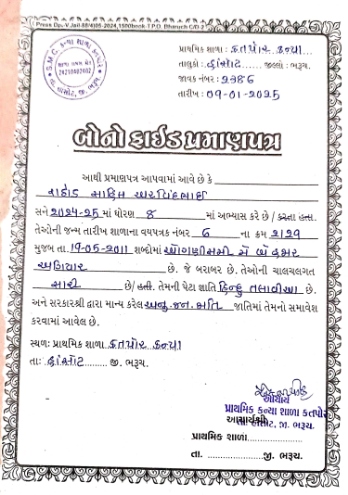 Press Dp.-V.Jail-88/4/05-2024,1500book-1.P.O. Bharuch C/D 2
S.M.C. કન્યા શાળા કતપોર
શાળા ડાયસ કોડ
24210402602
તા. હાંસોટ, જી. ભરૂચ.
પ્રાથમિક શાળા : કતપોર કન્યા
તાલુકો : હાંસોટ જીલ્લો : ભરૂચ.
જાવક નંબર : 2386
તારીખ : 09-01-2025
બોનોફાઈડ પ્રમાણપત્ર
આથી પ્રમાણપત્ર આપવામાં આવે છે કે
રાઠોડ અરવિંદભાઈ
સને 2024-25 માં ધોરણ 8 માં અભ્યાસ કરે છે / કરતા હતા.
તેઓની જન્મ તારીખ શાળાના વયપત્રક નંબર 6 ના ક્રમ 2129
મુજબ તા. 19-05-2011 શબ્દોમાં ઓગણીસમી મે બે હજાર
અગિયાર છે. જે બરાબર છે. તેઓની ચાલચલગત
સારી છે/ હતી. તેમની પેટા જ્ઞાતિ હિન્દુ તલાવીયા છે.
અને સરકારશ્રી દ્વારા માન્ય કરેલ અનુ.જન.જાતિ જાતિમાં તેમનો સમાવેશ
કરવામાં આવેલ છે.
સ્થળ: પ્રાથમિક શાળા કતપોર કન્યા
તા: હાંસોટ જી. ભરૂચ.
આચાર્ય
પ્રાથમિક કન્યા શાળા કતપોર
તા. હાંસોટ, જી. ભરૂચ.
આચાર્યશ્રી
પ્રાથમિક શાળા
તા. જી. ભરૂચ.